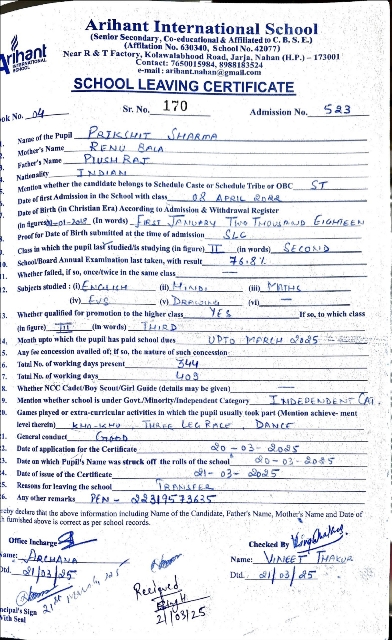 Arihant International School
(Senior Secondary, Co-educational & Affiliated to C. B. S. E.)
(Affilation No. 630340, School No. 42077)
Near R & T Factory, Kolawalabhood Road, Jarja, Nahan (H.P.) – 173001
Contact: 7650015984, 8988183524
e-mail : arihant.nahan@gmail.com
Arihant
INTERNATIONAL SCHOOL
SCHOOL LEAVING CERTIFICATE
ok No. 04 Sr. No. 170 Admission No. 523
Name of the Pupil PRIKSHIT SHARMA
Mother's Name RENU BALA
Father's Name PIUSH RAJ
Nationality INDIAN
Mention whether the candidate belongs to Schedule Caste or Schedule Tribe or OBC ST
Date of first Admission in the School with class 08 APRIL 2022
Date of Birth (in Christian Era) According to Admission & Withdrawal Register
(in figures) 01-01-2018 (In words) FIRST JANUARY TWO THOUSAND EIGHTEEN
Proof for Date of Birth submitted at the time of admission SLC
Class in which the pupil last studied/is studying (in figure) II (in words) SECOND
School/Board Annual Examination last taken, with result 76.8%
Whether failed, if so, once/twice in the same class —
2. Subjects studied : (i) ENGLISH (ii) HINDI (iii) MATHS
(iv) EVS (v) DRAWING (vi) —
3. Whether qualified for promotion to the higher class YES If so, to which class
(in figure) III (in words) THIRD
4. Month upto which the pupil has paid school dues UPTO MARCH 2025
5. Any fee concession availed of; if so, the nature of such concession —
6. Total No. of working days present 344
7. Total No. of working days 409
8. Whether NCC Cadet/Boy Scout/Girl Guide (details may be given) —
9. Mention whether school is under Govt./Minority/Independent Category INDEPENDENT CAT.
0. Games played or extra-curricular activities in which the pupil usually took part (Mention achieve- ment
level therein) KHO-KHO THREE LEG RACE, DANCE
1. General conduct GOOD
2. Date of application for the Certificate 20-03-2025
3. Date on which Pupil's Name was struck off the rolls of the school 20-03-2025
4. Date of issue of the Certificate 21-03-2025
5. Reasons for leaving the school TRANSFER
6. Any other remarks PEN - 22319573635
reby declare that the above information including Name of the Candidate, Father's Name, Mother's Name and Date of
h furnished above is correct as per school records.
Office Incharge Checked By
Name: ARCHANA Name: VINEET THAKUR
Dtd. 21/03/25 Dtd. 21/03/25
21st March 25
Received
21/03/25
ncipal's Sign
With Seal